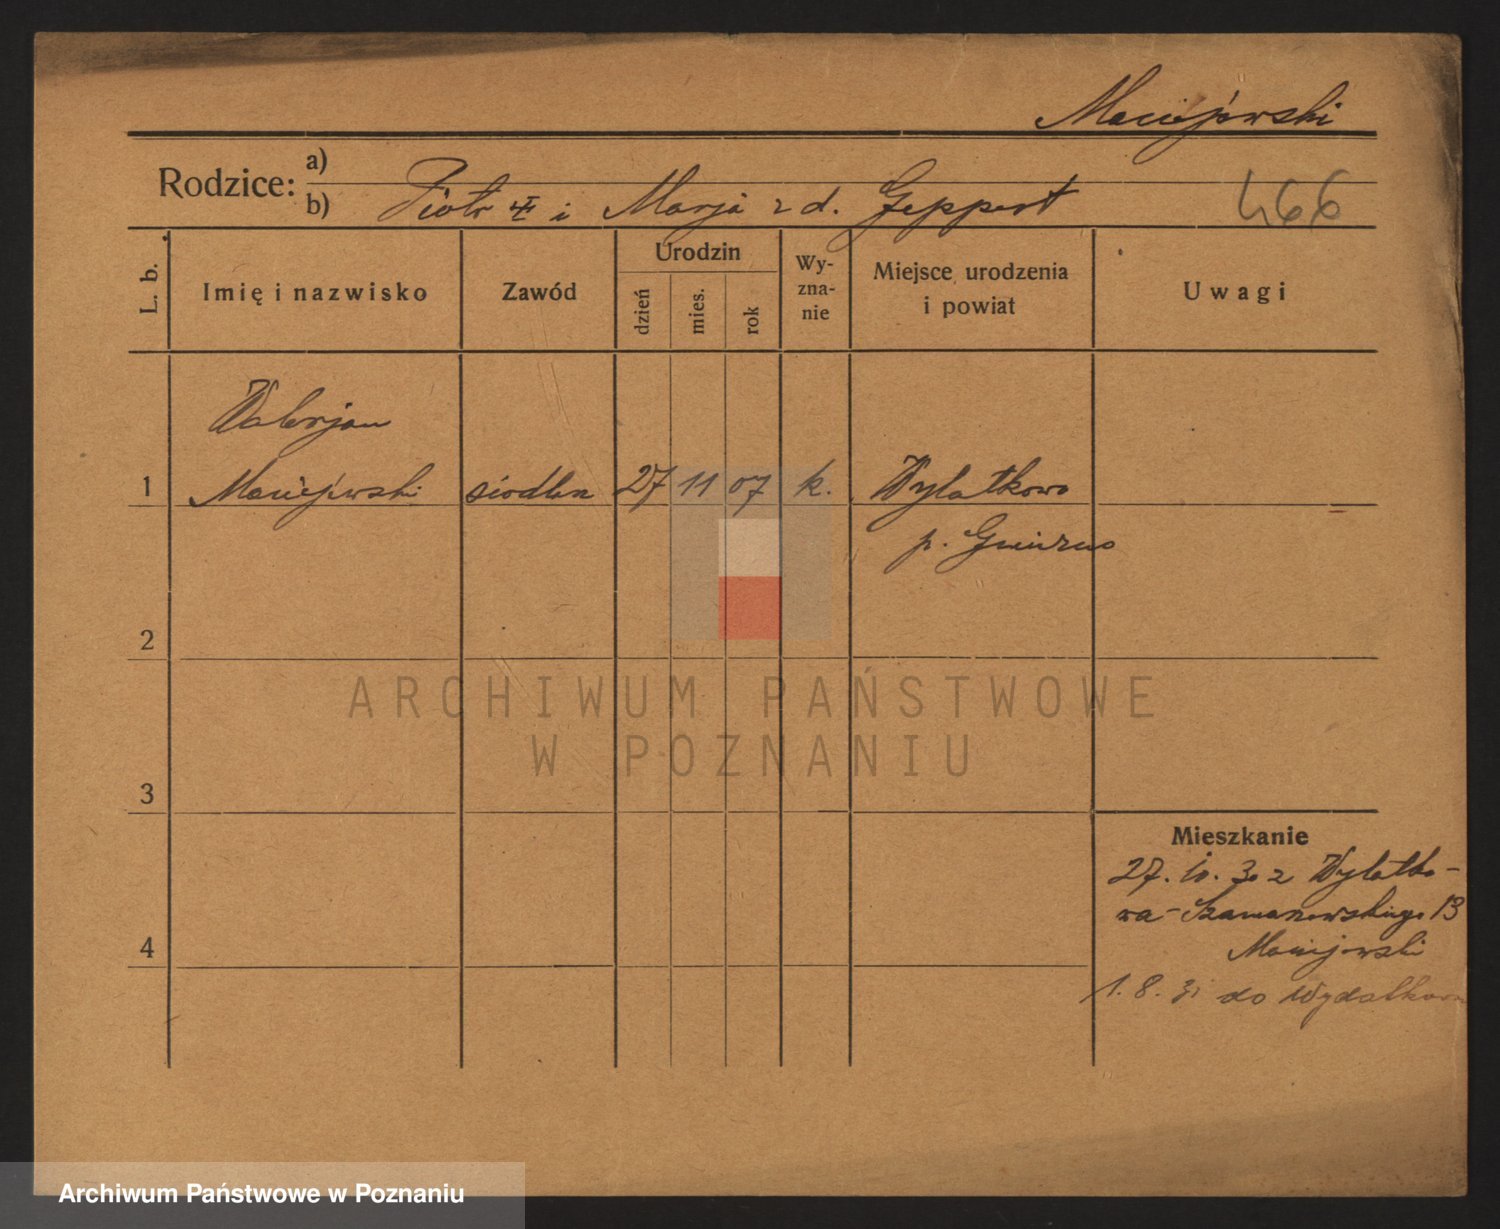 Maciejewski
Rodzice: a)
b) Piotr i Marja z d. Geppert
466
L. b.
Imię i nazwisko
Zawód
Urodzin
dzień
mies.
rok
Wy-
zna-
nie
Miejsce urodzenia
i powiat
Uwagi
Walerjan
1 Maciejewski siodlarz 27 11 07 k. Wylatkowo
p. Gniezno
2
ARCHIWUM PAŃSTWOWE
W POZNANIU
3
Mieszkanie
27. 10. 30 z Wylatko-
wa - 13
4
Maciejewski
1. 8. 31 do
Archiwum Państwowe w Poznaniu